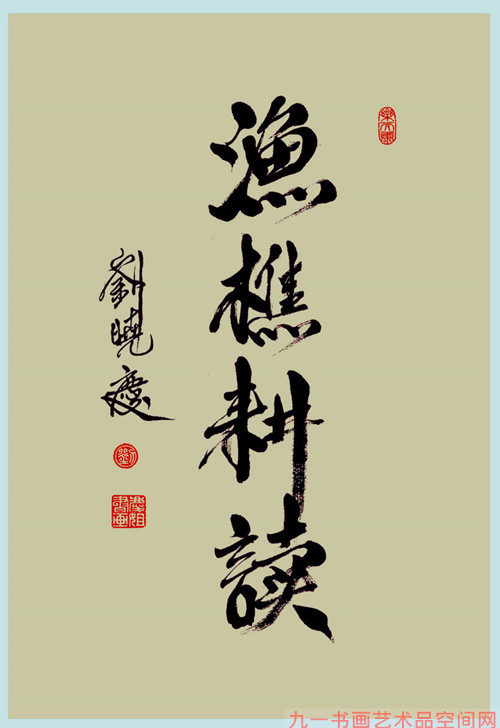 漁樵耕讀
劉曉慶
九一书画艺术品空间网